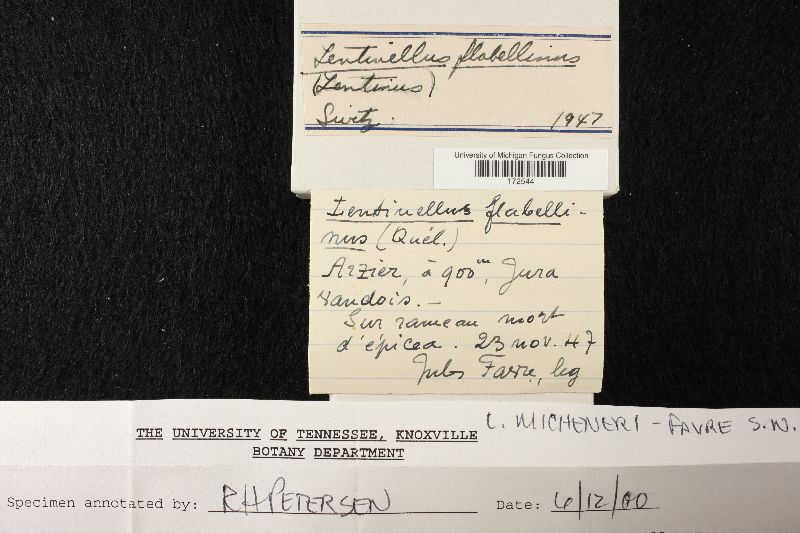 Lentinellus flabellinus
(Lentinus)
Switz. 1947
University of Michigan Fungus Collection
172544
Lentinellus flabelli-
nus (Quél.)
Arzier, à 900m, Jura
vaudois. –
Sur rameau mort
d'épicea. 23 nov. 47
Jules Favre, leg
L. MICHENERI – FAVRE S.N.
THE UNIVERSITY OF TENNESSEE, KNOXVILLE
BOTANY DEPARTMENT
Specimen annotated by: RH PETERSEN Date: 6/12/00